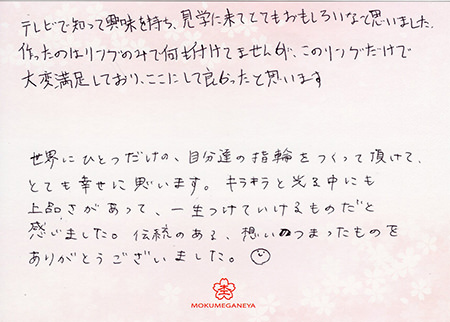 テレビで知って興味を持ち、見学に来てとてもおもしろいなと思いました。
作ったのはリングのみで何も付けてませんが、このリングだけで
大変満足しており、ここにして良かったと思います
世界にひとつだけの、自分達の指輪をつくって頂けて、
とても幸せに思います。キラキラと光る中にも
上品さがあって、一生つけていけるものだと
感じました。伝統のある、想いのつまったものを
ありがとうございました。
MOKUMEGANEYA